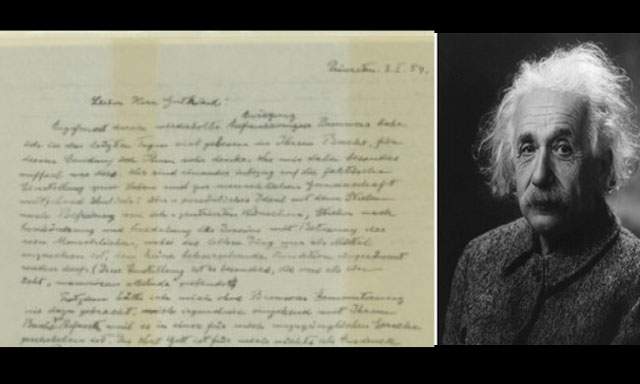 Princeton. 3. I. 54.
Lieber Herr Gutkind!
Angefeuert durch wiederholte Anregung Brouwers habe
ich in den letzten Tagen viel gelesen in Ihrem Buche, für
dessen Sendung ich Ihnen sehr danke. Was mir dabei besonders
auffiel war dies. Wir sind einander inbezug auf die faktische
Einstellung zum Leben und zur menschlichen Gemeinschaft
weitgehend ähnlich: über-persönliches Ideal mit dem Streben
nach Befreiung von ich-zentrierten Wünschen, Streben nach
Verschönerung und Veredelung des Daseins mit Betonung des
rein Menschlichen, wobei das leblose Ding nur als Mittel
anzusehen ist, dem keine beherrschende Funktion eingeräumt
werden darf. (Diese Einstellung ist es besonders, die uns als ein
echt "unamerican attitude" verbindet.)
Trotzdem hätte ich mich ohne Brouwers Ermunterung
nie dazu gebracht, mich irgendwie eingehend mit Ihrem
Buche weil es in einer für mich unzugänglichen Sprache
geschrieben ist. Das Wort Gott ist für mich nichts als Ausdruck